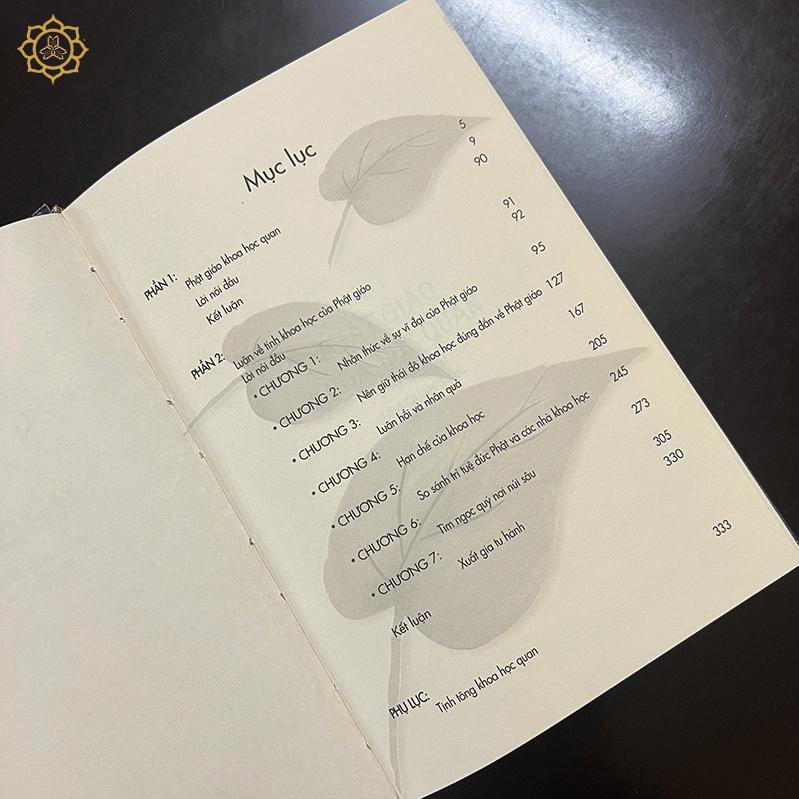 Mục lục
PHẦN 1: Phật giáo khoa học quan 5
Lời nói đầu 9
Kết luận 90
PHẦN 2: Luận về tính khoa học của Phật giáo 91
Lời nói đầu 92
• CHƯƠNG 1: Nhận thức về sự vĩ đại của Phật giáo 95
• CHƯƠNG 2: Nên giữ thái độ khoa học đúng đắn về Phật giáo 127
• CHƯƠNG 3: Luân hồi và nhân quả 167
• CHƯƠNG 4: Hạn chế của khoa học 205
• CHƯƠNG 5: So sánh trí tuệ đức Phật và các nhà khoa học 245
• CHƯƠNG 6: Tìm ngọc quý nơi núi sâu 273
• CHƯƠNG 7: Xuất gia tu hành 305
Kết luận 330
PHỤ LỤC: Tịnh tông khoa học quan 333